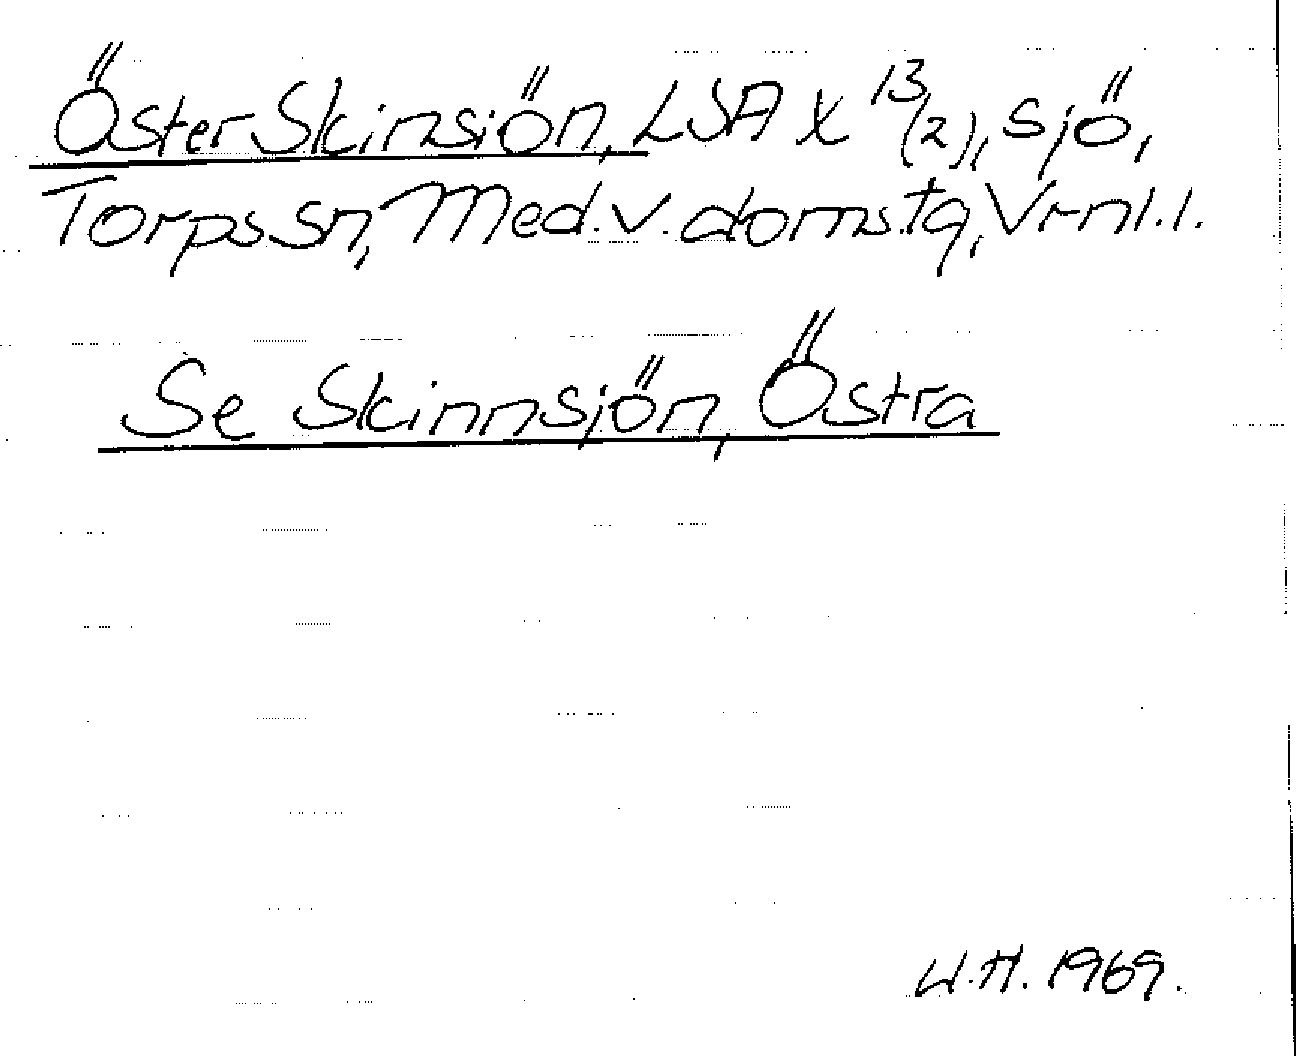 Öster Skinsiön, LSA X 13/(2), sjö,
Torps sn, Med. v. doms.tg, Vrml. l.
Se Skinnsjön, Östra
U.H. 1969.